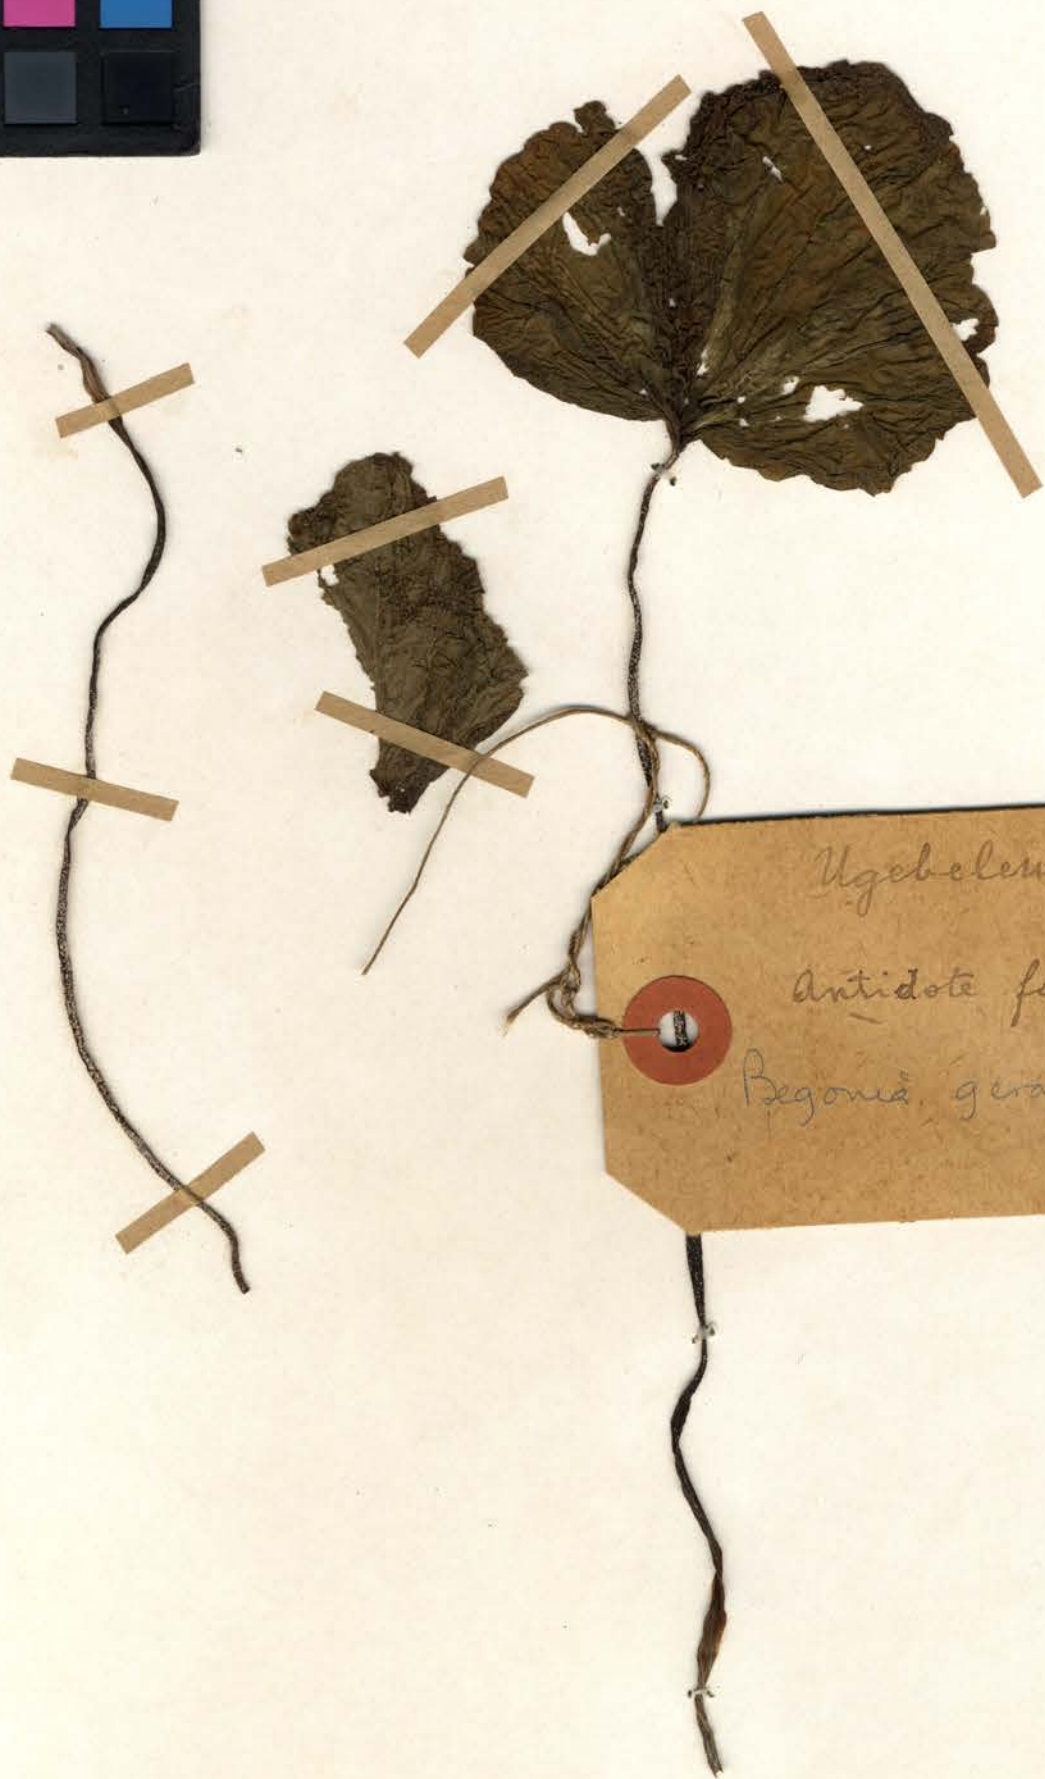 Ugebelem
Antidote fo
Begonia gera